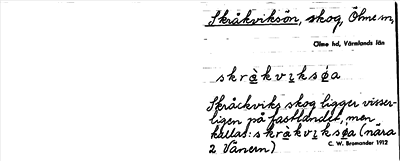 Skråkviksön, skog, Ölme sn,
Ölme hd, Värmlands län
skràkvıksøa
Skråckviks skog ligger visser-
ligen på fastlandet, men
kallas: skràkvıksøa (nära
2 Vänern)
C. W. Bromander 1912